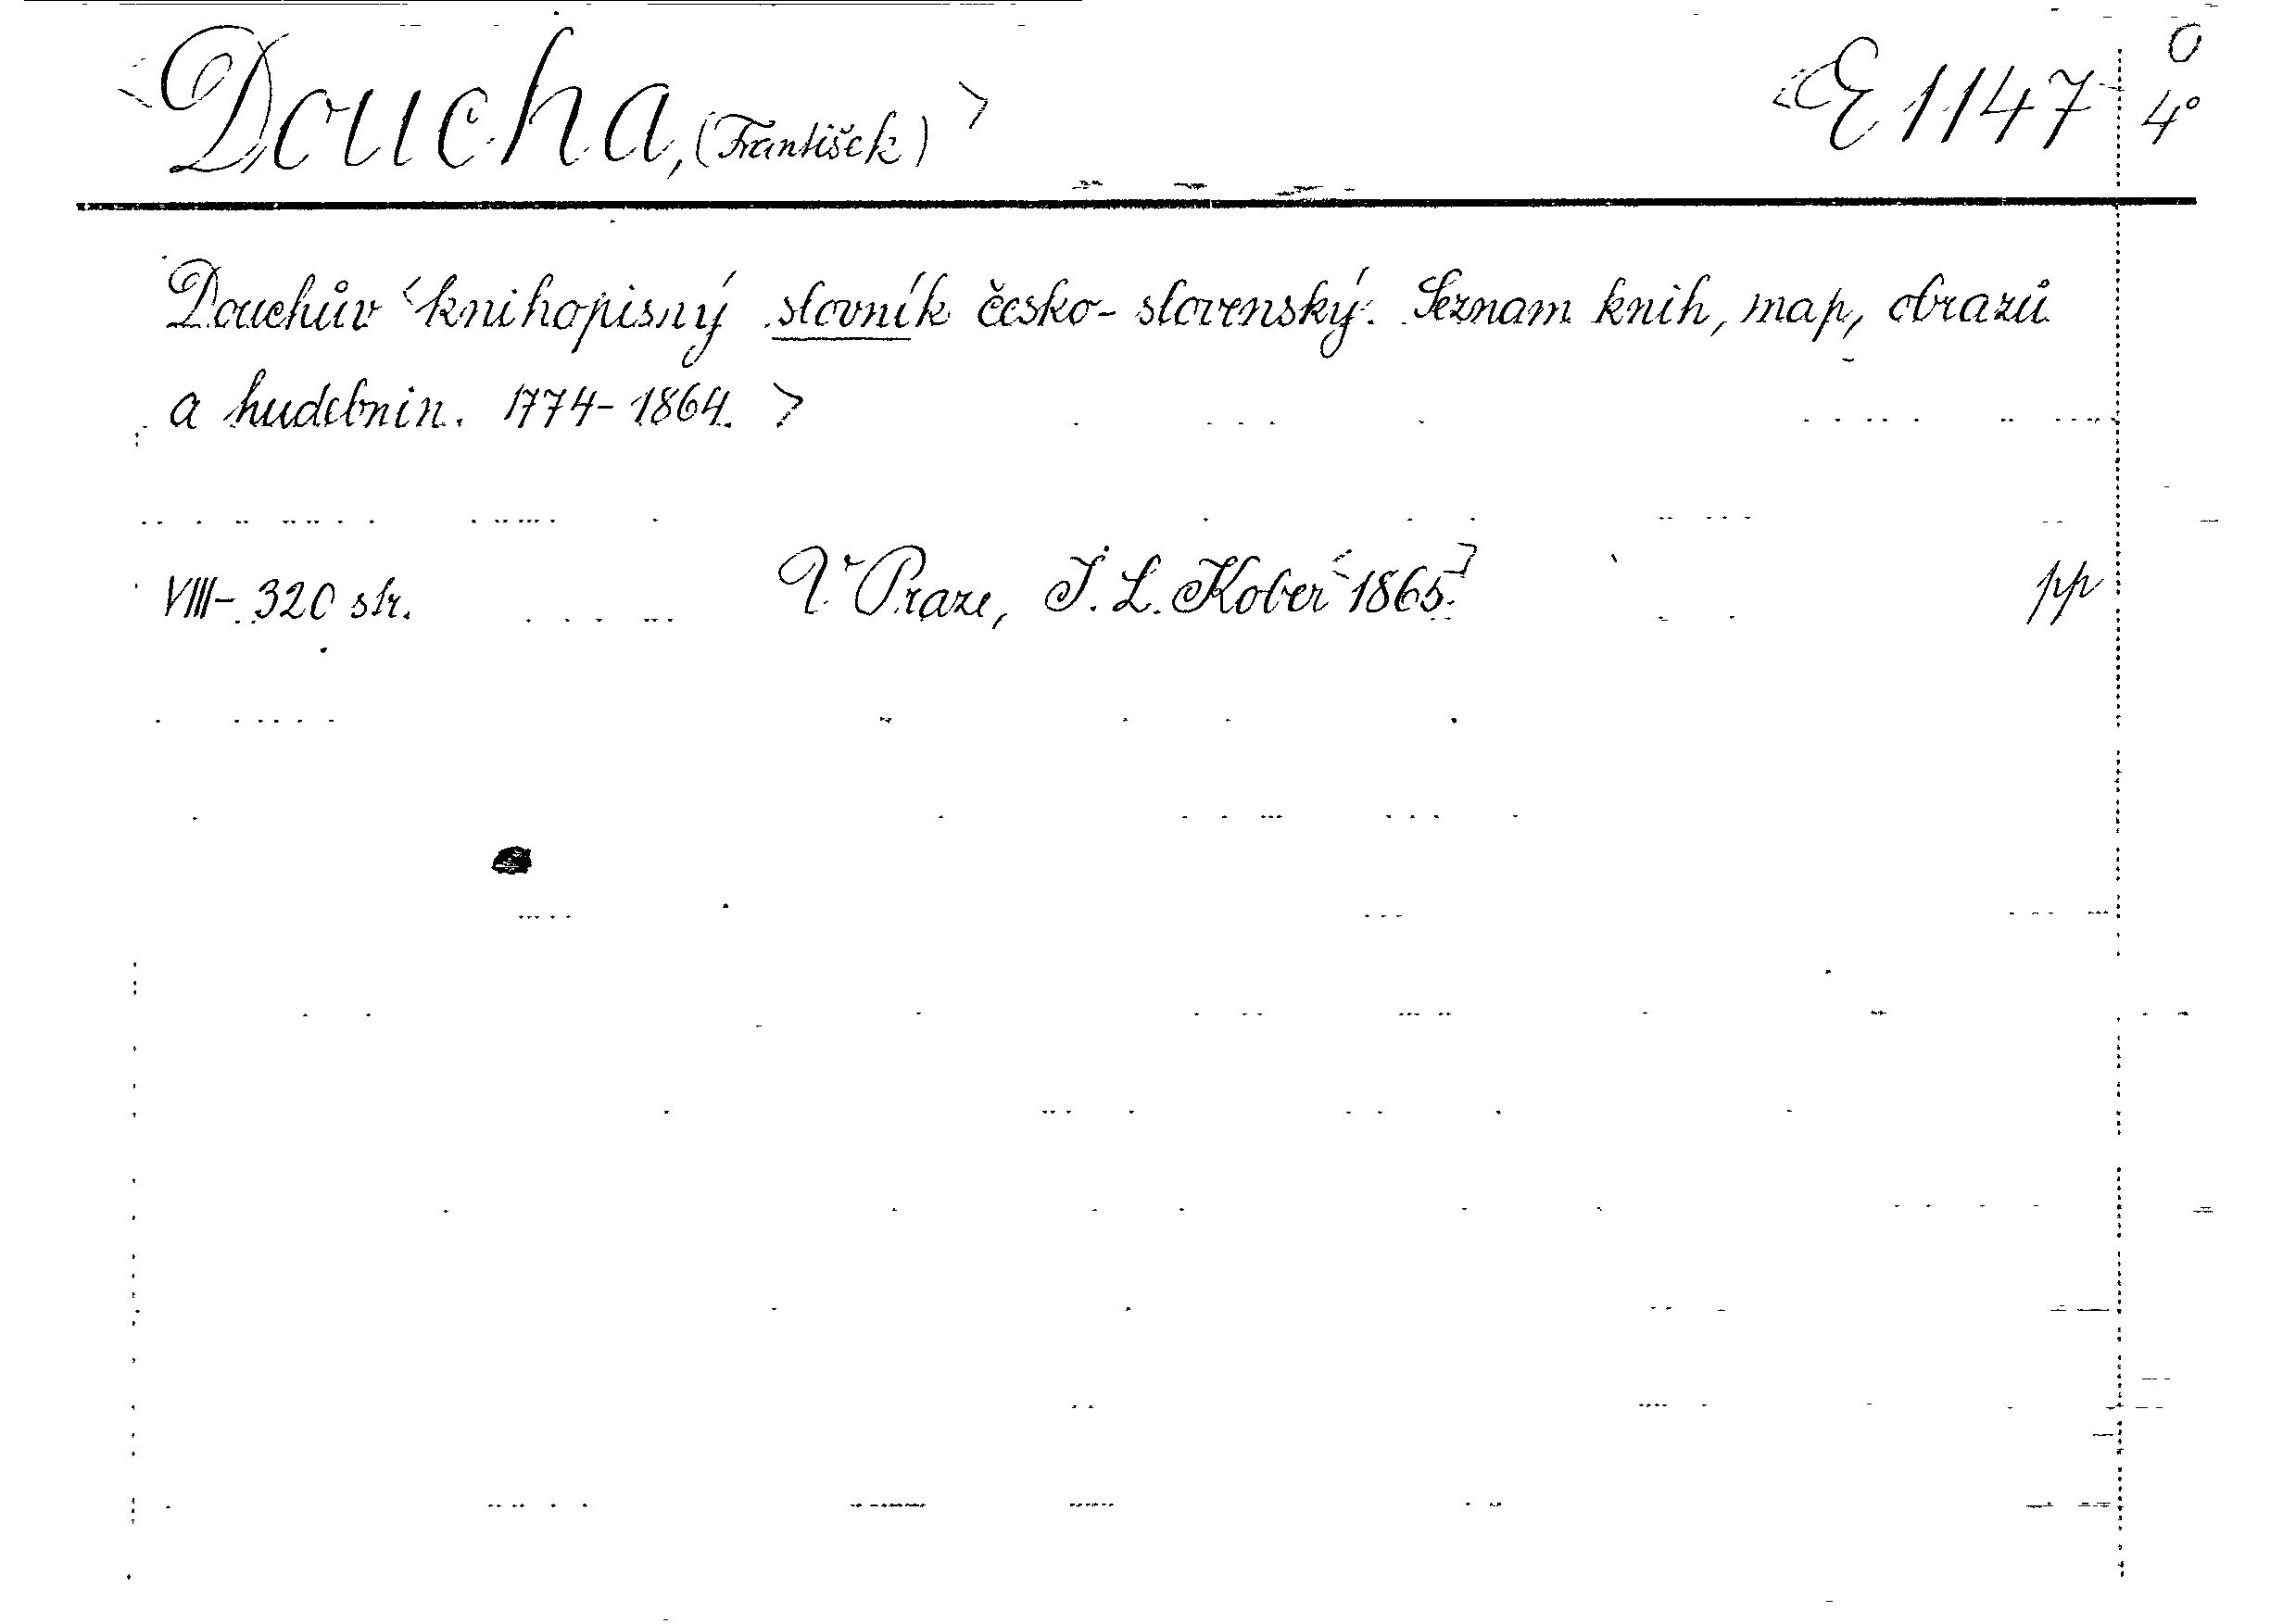 <Doucha, (František)> <E 1147 4° O
Douchův <knihopisný slovník česko-slovenský. Seznam knih, map, obrazů
a hudebnin. 1774-1864. >
VIII-320 str. V Praze, I. L. Kober <1865.] pp